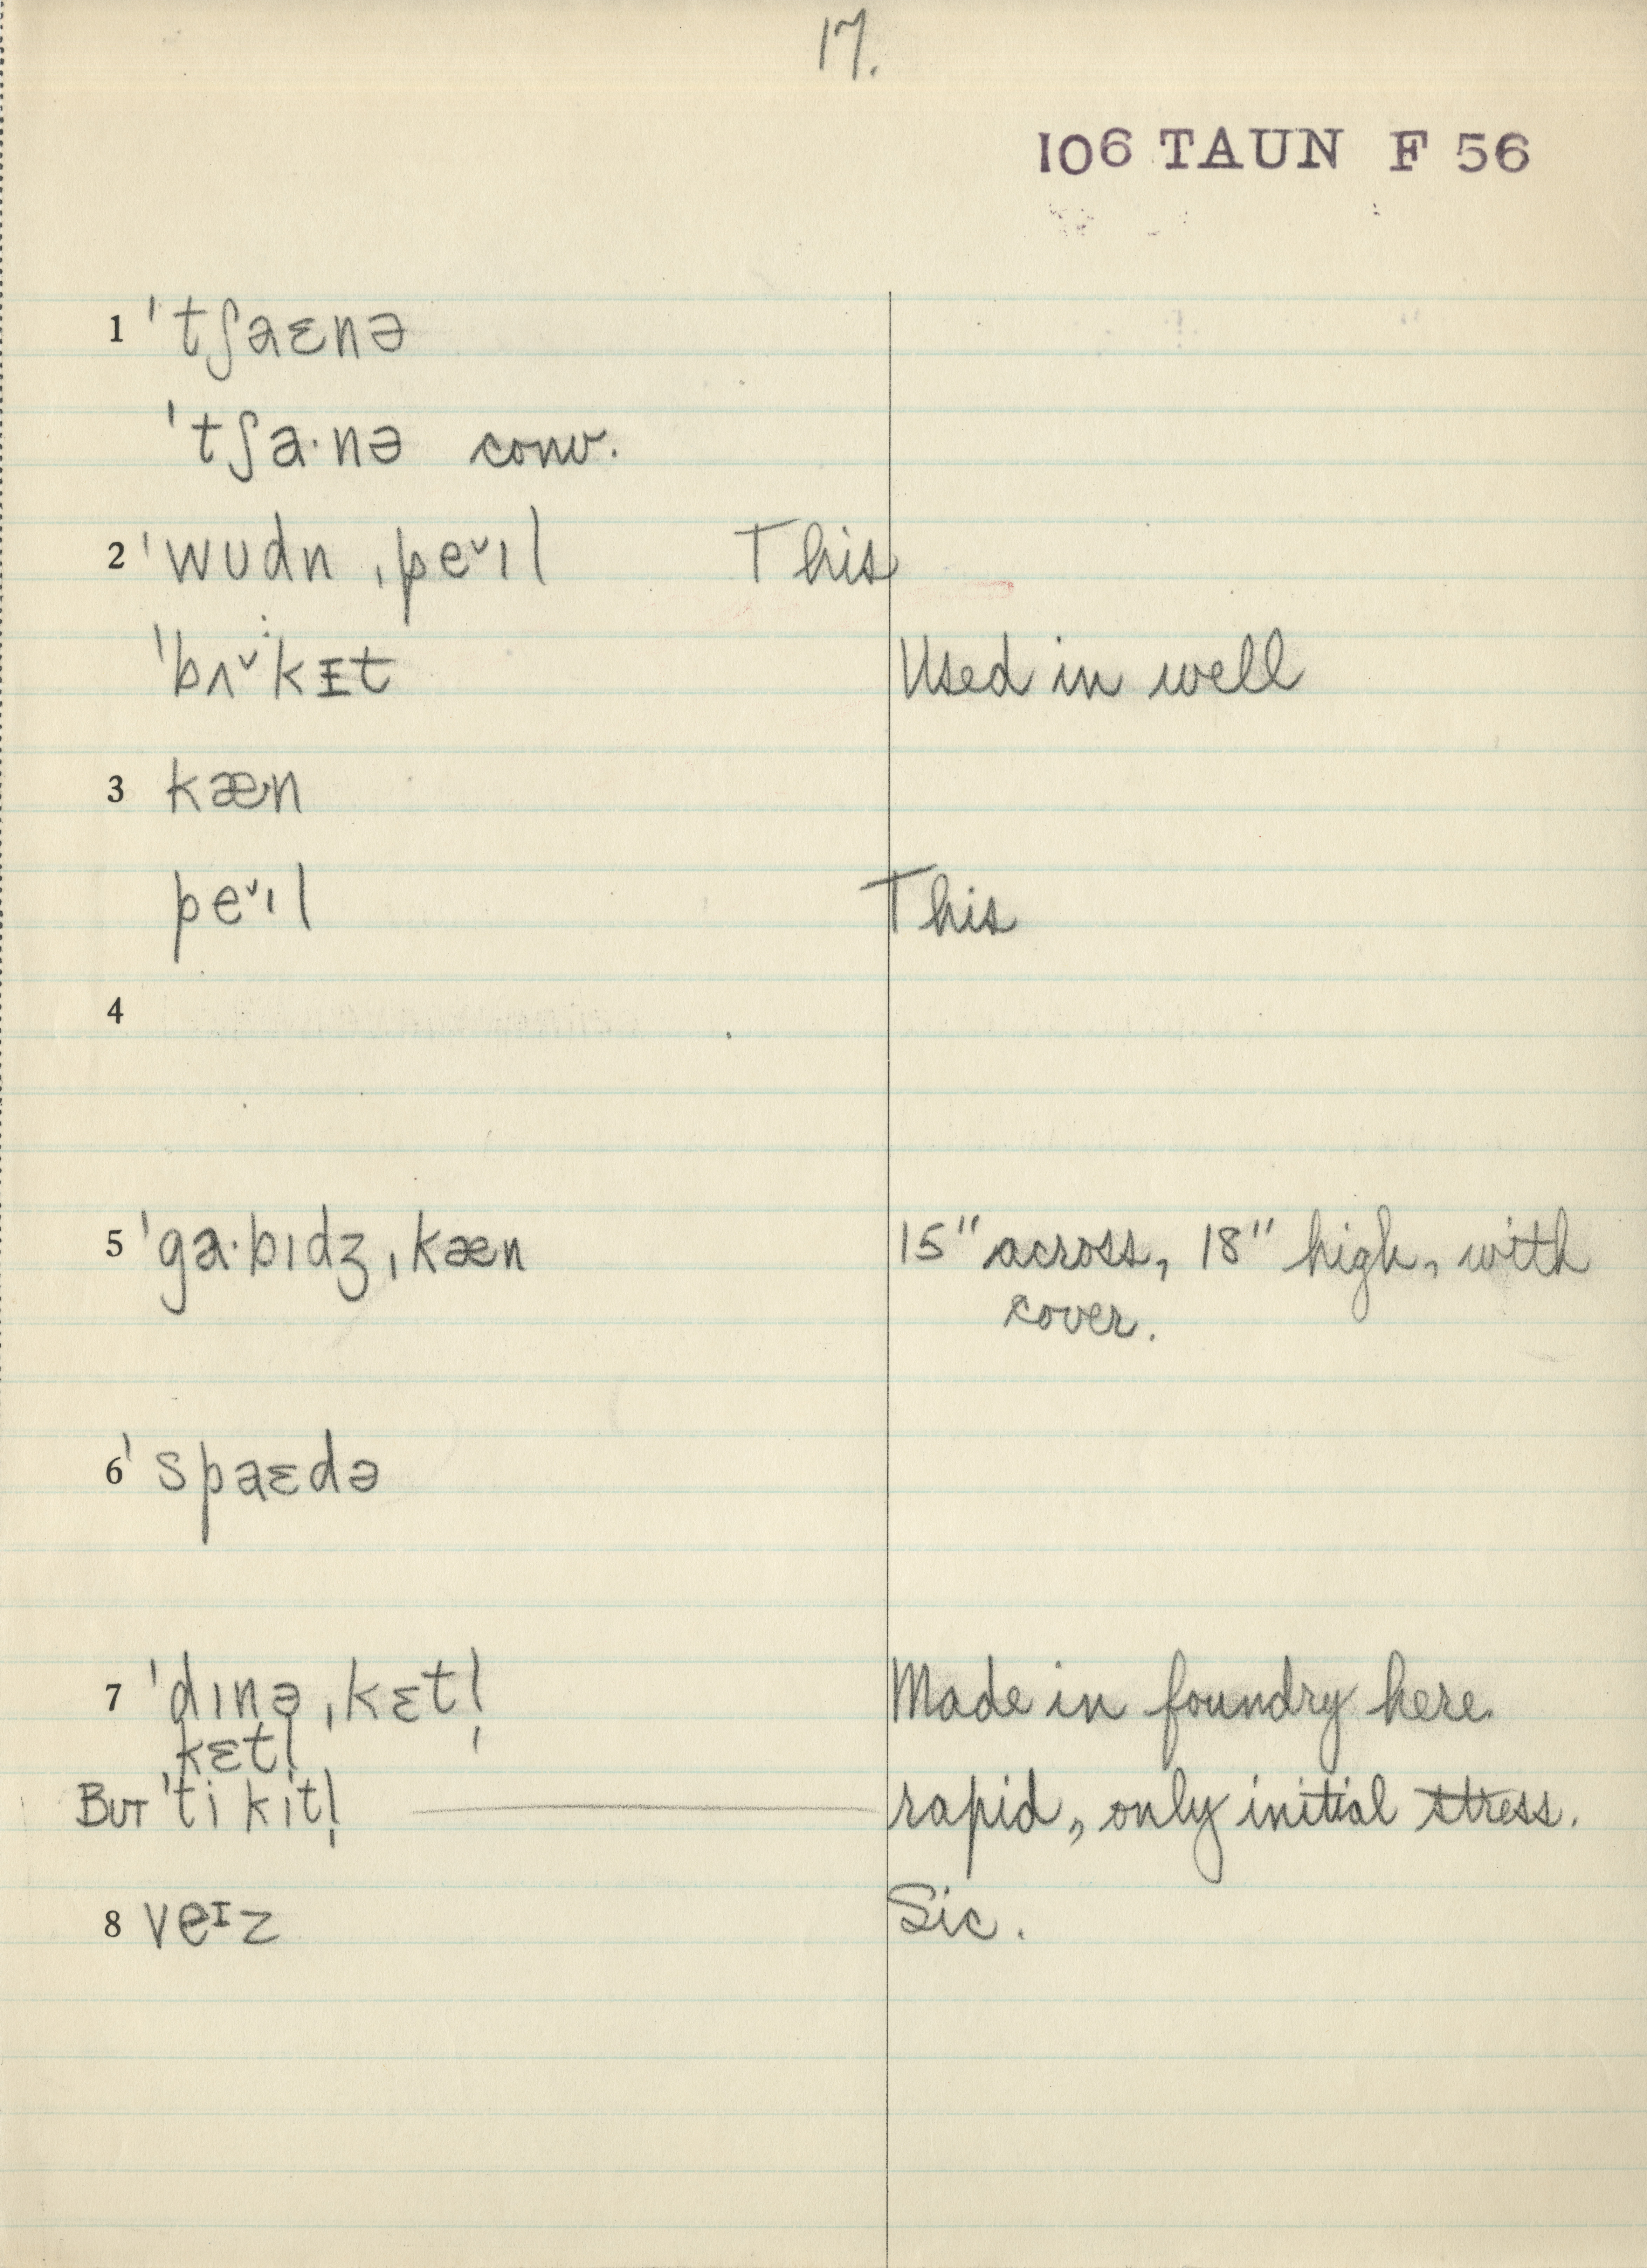 17.
106 TAUN F 56
1 ˈtʃaɛnə
ˈtʃa·nə conv.
2 ˈwʊdn ˌpe˅ɪl This
ˈbʌ˅kᵻt Used in well
3 kæn
pe˅ɪl This
4
5 ˈga·bɪdʒ ˌkæn 15" across, 18" high, with
cover.
6 ˈspaɛdə
7 ˈdɪnə ˌkɛtl̩ Made in foundry here
ˌkɛtl̩
BUT ˈti kɪtl̩ rapid, only initial stress.
8 veɪz Sic.